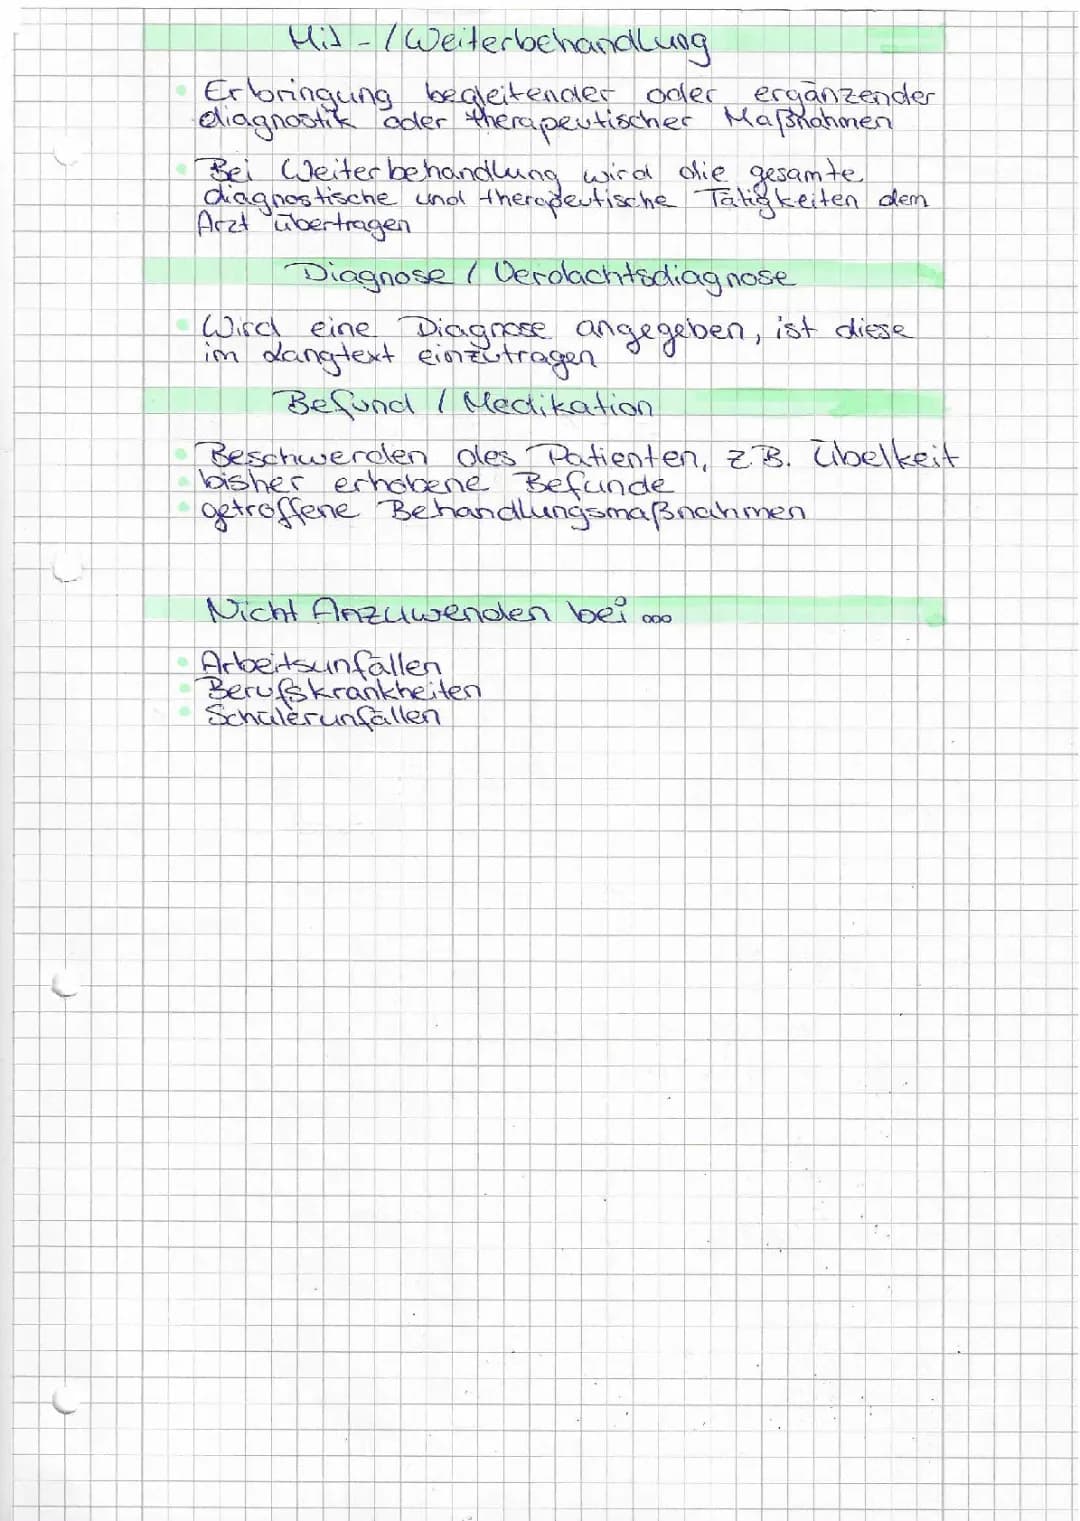 Mit - / Weiterbehandlung
• Erbringung begleitender oder ergänzender
diagnostik oder therapeutischer Maßnahmen
• Bei Weiterbehandlung wird die gesamte
diagnostische und therapeutische Tätigkeiten dem
Arzt übertragen
Diagnose / Verdachtsdiagnose
• Wird eine Diagnose angegeben, ist diese
im Langtext einzutragen
Befund / Medikation
• Beschwerden des Patienten, z.B. Übelkeit
• bisher erhobene Befunde
• getroffene Behandlungsmaßnahmen
Nicht Anzuwenden bei ...
• Arbeitsunfällen
• Berufskrankheiten
• Schülerunfällen